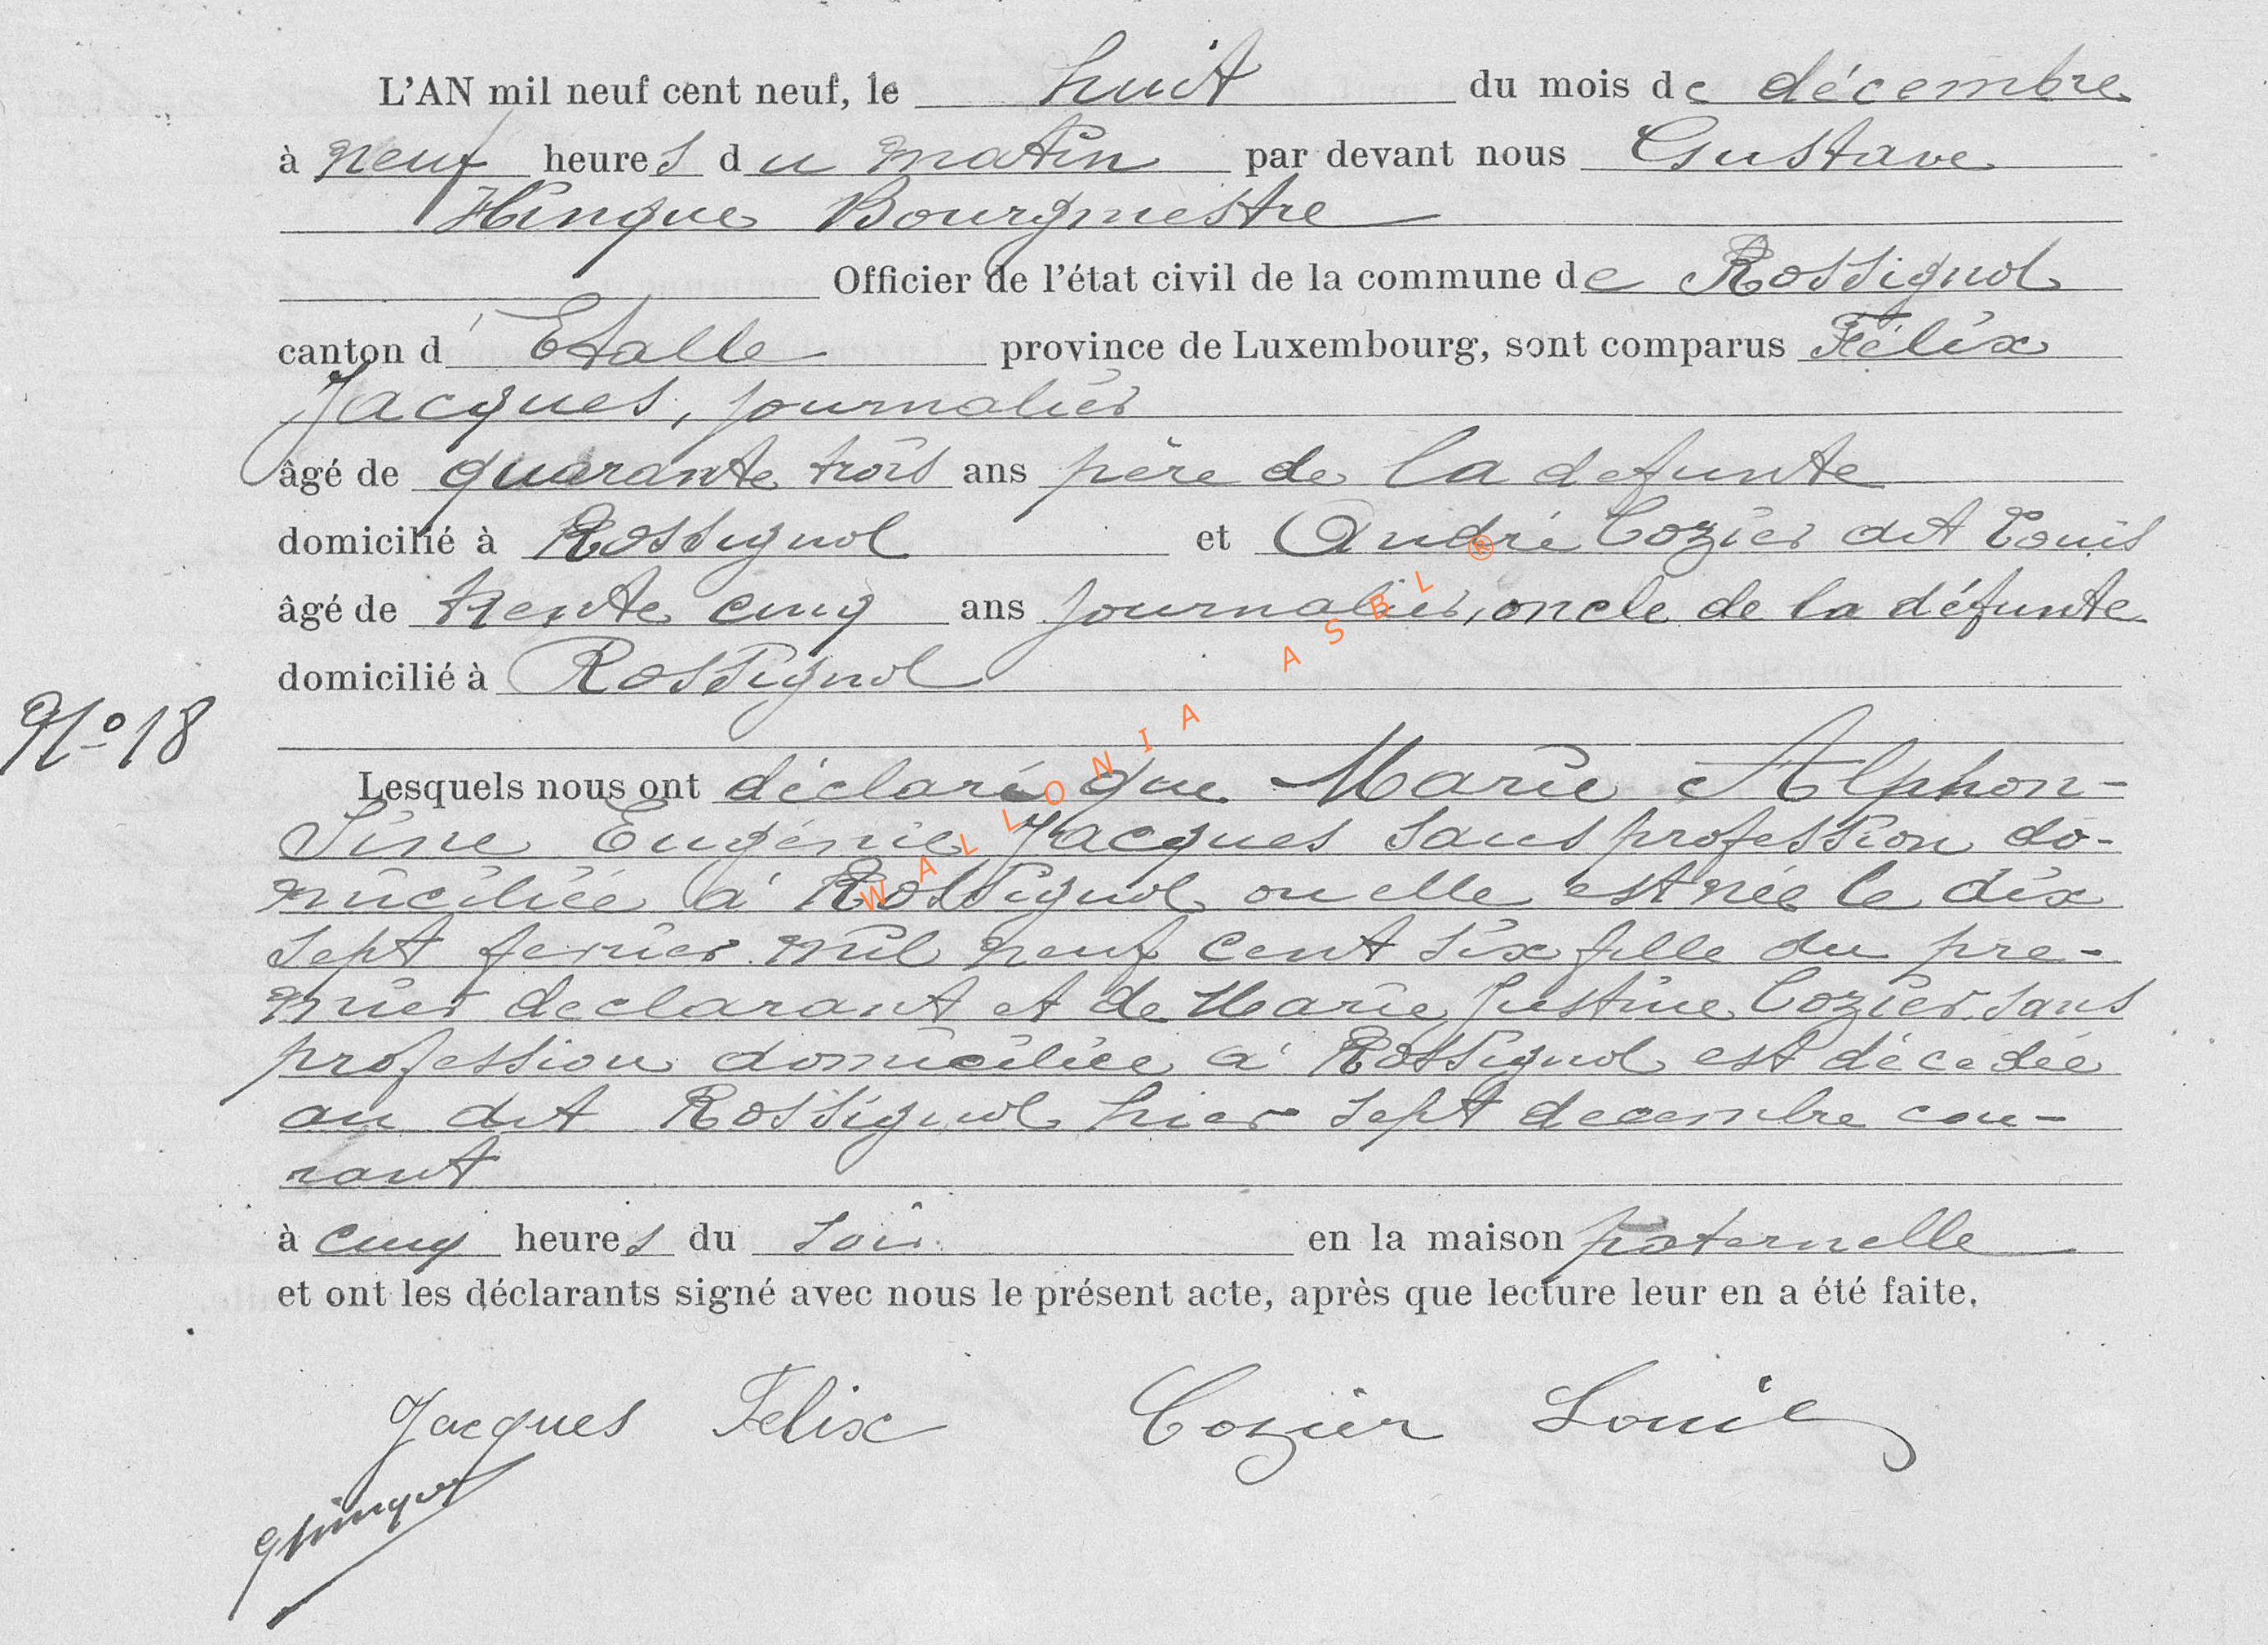 L'AN mil neuf cent neuf, le huit du mois de décembre
à neuf heures du matin par devant nous Gustave
Hinque Bourgmestre
Officier de l'état civil de la commune de Rossignol
canton d'Etalle province de Luxembourg, sont comparus Félix
Jacques, journalier
âgé de quarante trois ans père de la defunte
domicilié à Rossignol et André Cozier dit Louis
âgé de trente cinq ans journalier, oncle de la défunte
domicilié à Rossignol
No 18
Lesquels nous ont déclaré que Marie Alphon-
sine Eugénie Jacques sans profession do-
miciliée à Rossignol ou elle est née le dix
sept fevrier mil neuf cent six fille du pre-
mier declarant et de Marie Justine Cozier sans
profession domiciliée à Rossignol est décédée
au dit Rossignol hier sept decembre cou-
rant
à cinq heures du soir en la maison paternelle
et ont les déclarants signé avec nous le présent acte, après que lecture leur en a été faite.
Jacques Felix Cozier Louis
WALLONIA ASBL ®